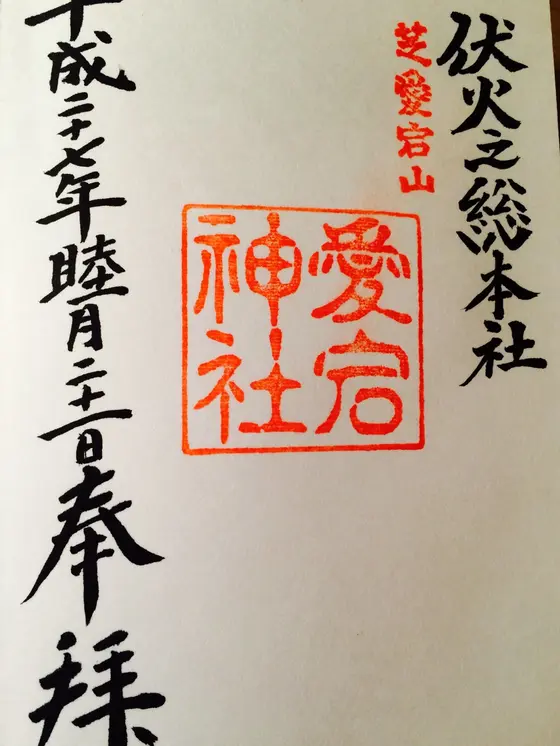 伏火之総本社
芝愛宕山
愛宕
神社
平成二十七年睦月二十一日奉拝